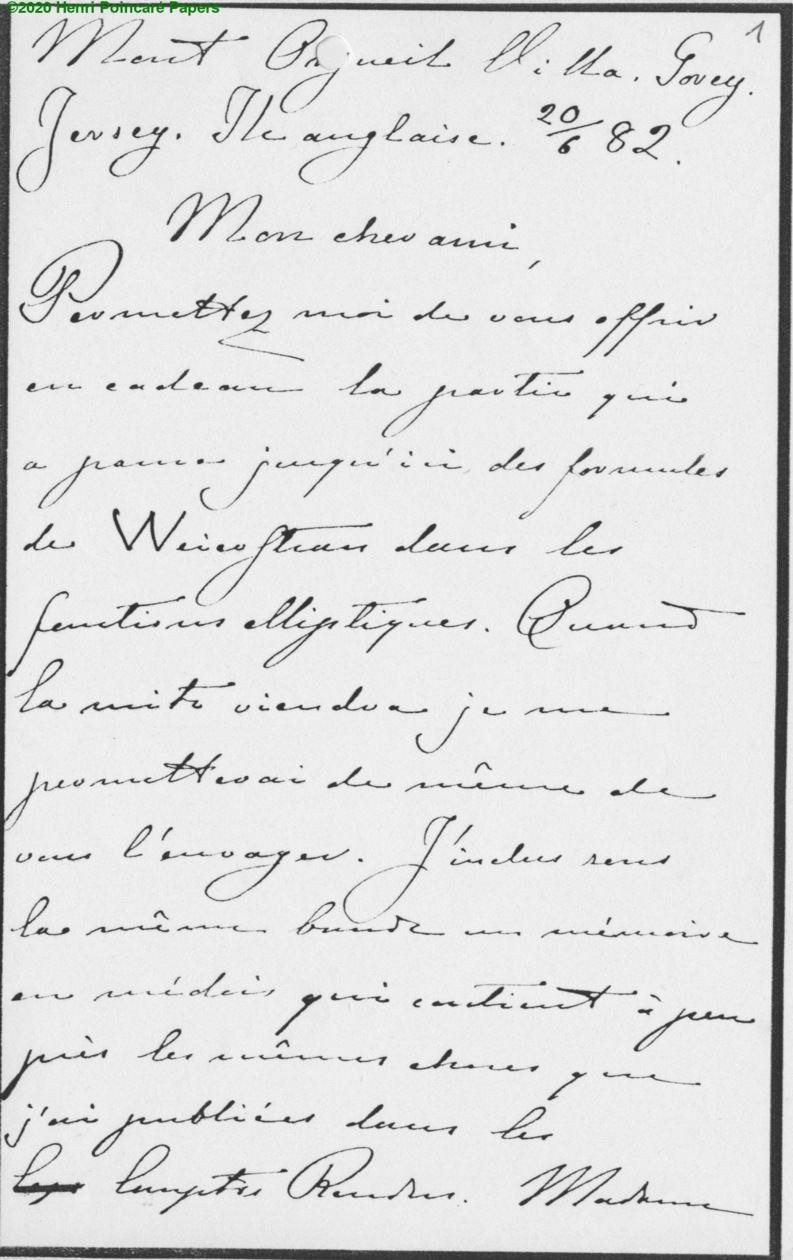 ©2020 Henri Poincaré Papers
1
Mont Orgueil Villa. Gorey.
Jersey. Ile anglaise. 20/6 82.
Mon cher ami,
Permettez moi de vous offrir
en cadeau la partie qui
a parue jusqu'ici des formules
de Weierstrass dans les
fonctions elliptiques. Quand
la suite viendra je me
promettrai de même de
vous l'envoyer. J'inclus sous
la même bande un mémoire
en suédois qui contient à peu
près les mêmes choses que
j'ai publiées dans les
Comptes Rendus. Madame